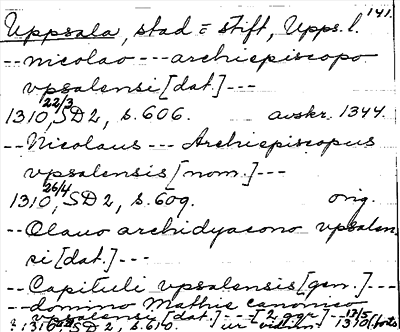 141.
Uppsala, stad = stift, Upps. l.
-- nicolao --- archiepiscopo
vpsalensi [dat.] ---
1310 22/3, SD 2, s. 606. avskr. 1344.
-- Nicolaus --- Archiepiscopus
vpsalensis [nom.] ---
1310 26/4, SD 2, s. 609. orig.
-- Olauo archidyacono vpsalen-
si [dat.] ---
-- Capituli vpsalensis [gen.] ---
-- domino Mathie canonico
vpsalensi [dat.] --- [2 ggr] --
1310 SD 2, s. 610. ur vidim 13/5